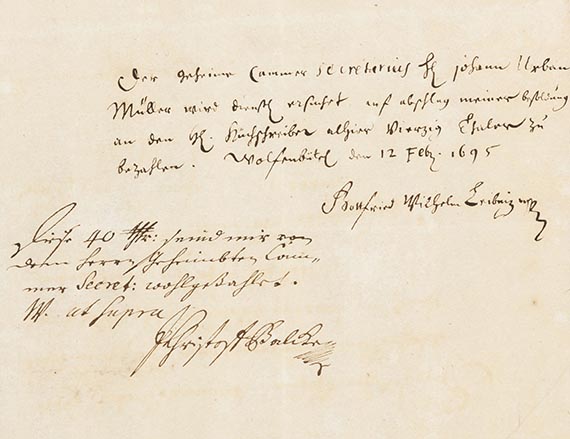 Der geheime Cammer Secretarius H. Johann Urban
Müller wird dienstl. ersuchet auf abschlag meiner besoldung
an den H. Küchschreiber alhier Vierzig Thaler zu
bezahlen. Wolfenbütel den 12 Febr. 1695
Gottfried Wilhelm Leibniz mp
Diese 40 Thr: seind mir von
dem Herrn Geheimbten Cam-
mer Secret: wohlgezahlet.
W. ut supra
Christoff Balcke